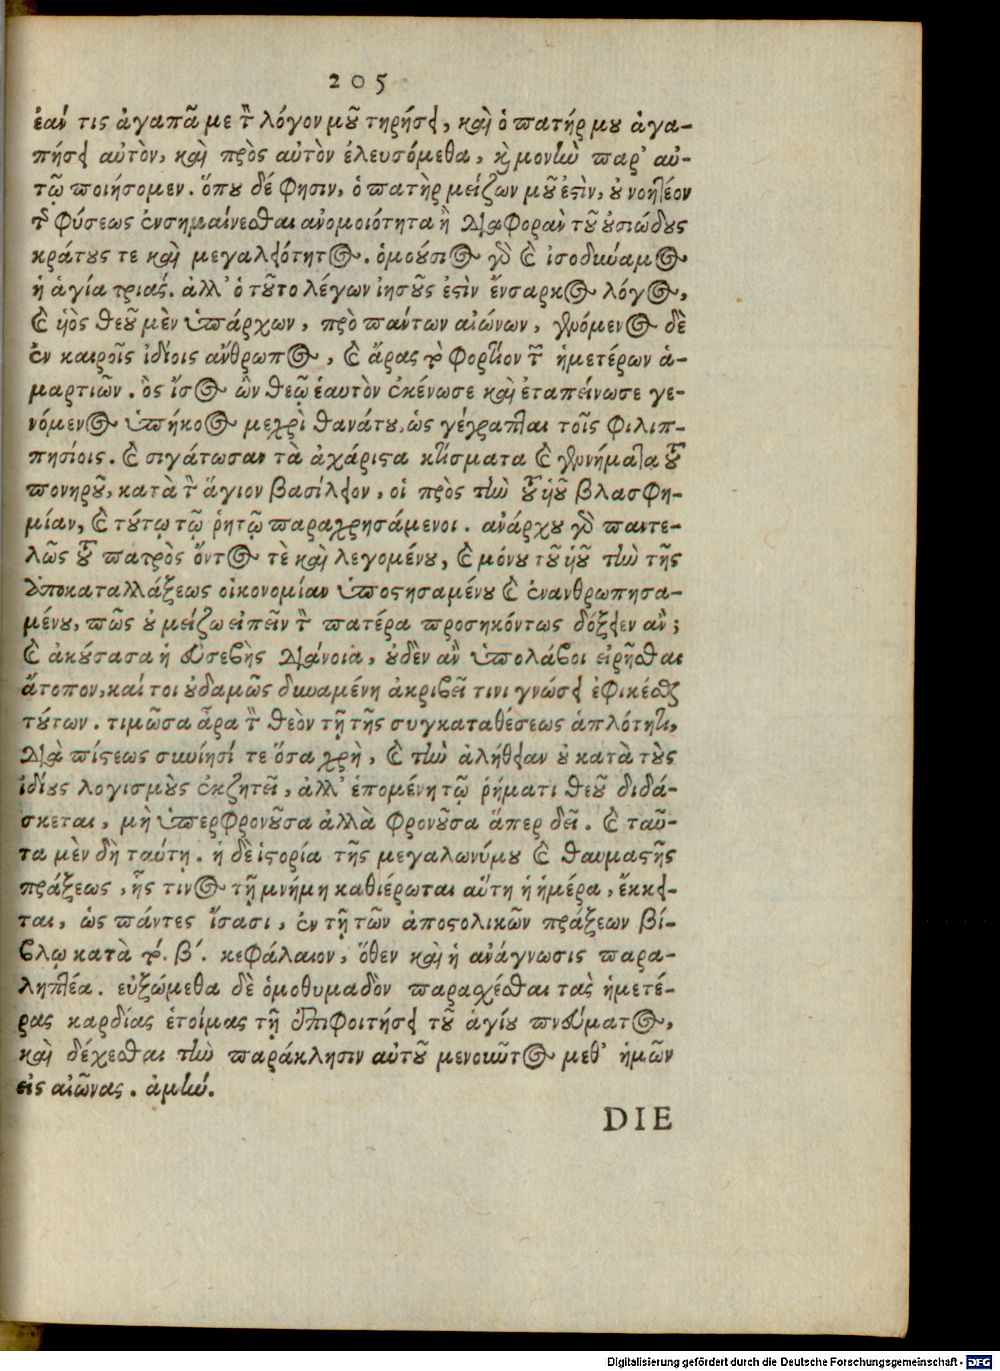 205
ἐάν τις ἀγαπᾶ με τὸν λόγον μοῦ τηρήσει, καὶ ὁ πατήρ μου ἀγα-
πήσει αὐτὸν, καὶ πρὸς αὐτὸν ἐλευσόμεθα, καὶ μονὴν παρ' αὐ-
τῷ ποιήσομεν. ὅπου δέ φησιν, ὁ πατὴρ μείζων μοῦ ἐστὶν, οὐ νοητέον
τῆς φύσεως ἐνσημαίνεσθαι ἀνομοιότητα ἢ διαφορὰν τοῦ οὐσιώδους
κράτους τε καὶ μεγαλειότητος. ὁμοούσιος γὰρ καὶ ἰσοδύναμος
ἡ ἁγία τριάς. ἀλλ' ὁ τοῦτο λέγων ἰησοῦς ἐστὶν ἔνσαρκος λόγος,
καὶ υἱὸς θεοῦ μὲν ὑπάρχων, πρὸ πάντων αἰώνων, γενόμενος δὲ
ἐν καιροῖς ἰδίοις ἄνθρωπος, καὶ ἄρας τὸ φορτίον τῶν ἡμετέρων ἁ-
μαρτιῶν. ὃς ἴσος ὢν θεῷ ἑαυτὸν ἐκένωσε καὶ ἐταπείνωσε γε-
νόμενος ὑπήκοος μεχρὶ θανάτου, ὡς γέγραπται τοῖς φιλιπ-
πησίοις. καὶ σιγάτωσαν τὰ ἀχάριστα κτίσματα καὶ γεννήματα τοῦ
πονηροῦ, κατὰ τὸν ἅγιον βασίλειον, οἱ πρὸς τὴν τοῦ υἱοῦ βλασφη-
μίαν, καὶ τούτῳ τῷ ῥητῷ παραχρησάμενοι. ἀνάρχου γὰρ παντε-
λῶς τοῦ πατρὸς ὄντος τὲ καὶ λεγομένου, καὶ μόνου τοῦ υἱοῦ τὴν τῆς
ἀποκαταλλάξεως οἰκονομίαν ὑποστησαμένου καὶ ἐνανθρωπησα-
μένου, πῶς οὐ μείζω εἰπεῖν τὸν πατέρα προσηκόντως δόξειεν ἄν;
καὶ ἀκούσασα ἡ εὐσεβὴς διάνοια, οὐδὲν ἂν ὑπολάβοι εἰρῆσθαι
ἄτοπον, καί τοι οὐδαμῶς δυναμένη ἀκριβεῖ τινι γνώσει ἐφικέσθαι
τούτων. τιμῶσα ἆρα τὸν θεὸν τῇ τῆς συγκαταθέσεως ἁπλότητι,
διὰ πίστεως συνίησί τε ὅσα χρὴ, καὶ τὴν ἀλήθειαν οὐ κατὰ τοὺς
ἰδίους λογισμοὺς ἐκζητεῖ, ἀλλ' ἑπομένη τῷ ῥήματι θεοῦ διδά-
σκεται, μὴ ὑπερφρονοῦσα ἀλλὰ φρονοῦσα ἅπερ δεῖ. καὶ ταῦ-
τα μὲν δὴ ταύτη. ἡ δὲ ἱστορία τῆς μεγαλωνύμου καὶ θαυμαστῆς
πράξεως, ἧς τινος τῇ μνήμη καθιέρωται αὕτη ἡ ἡμέρα, ἔκκει-
ται, ὡς πάντες ἴσασι, ἐν τῇ τῶν ἀποστολικῶν πράξεων βί-
βλῳ κατὰ τὸ. β΄. κεφάλαιον, ὅθεν καὶ ἡ ἀνάγνωσις παρα-
ληπτέα. εὐξώμεθα δὲ ὁμοθυμαδὸν παρασχέσθαι τὰς ἡμετέ-
ρας καρδίας ἑτοίμας τῇ ἐπιφοιτήσει τοῦ ἁγίου πνεύματος,
καὶ δέχεσθαι τὴν παράκλησιν αὐτοῦ μενοιῶτος μεθ' ἡμῶν
εἰς αἰῶνας. ἀμήν.
DIE
Digitalisierung gefördert durch die Deutsche Forschungsgemeinschaft - DFG